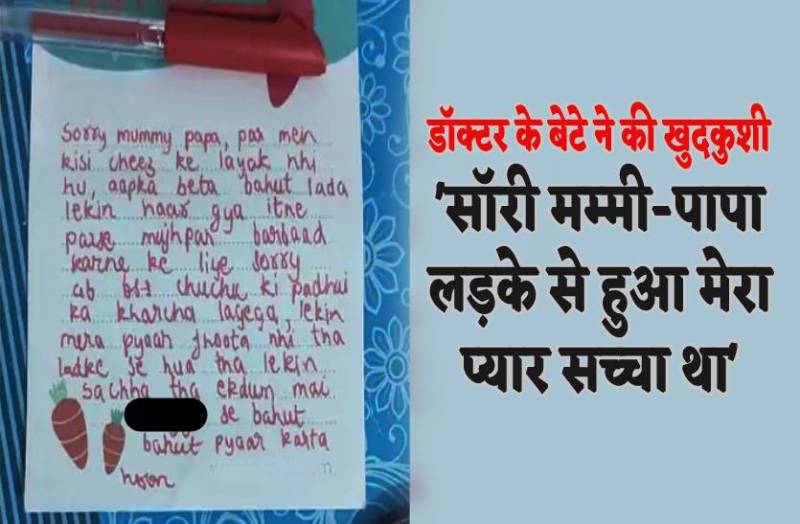 Sorry mummy papa, par mein
kisi cheez ke layak nhi
hu, aapka beta bahut lada
lekin haar gya itne
paise mujhpar barbaad
karne ke liye sorry
ab bss chuchu ki padhai
ka kharcha lagega, lekin
mera pyaar jhoota nhi tha
ladke se hua tha lekin
sachha tha ekdum mai
se bahut
bahut pyaar karta
hoon
डॉक्टर के बेटे ने की खुदकुशी
'सॉरी मम्मी-पापा
लड़के से हुआ मेरा
प्यार सच्चा था'